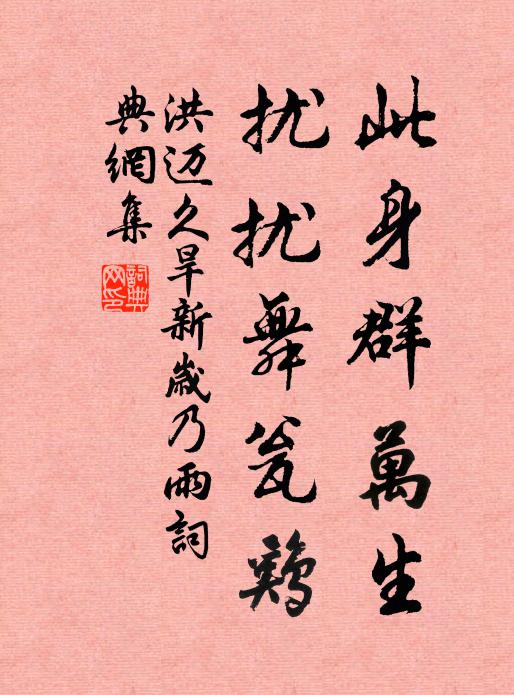 此身群萬生
扰扰舞瓮鷄
洪迈久旱新歲乃雨詞
典網集
詞典
网印